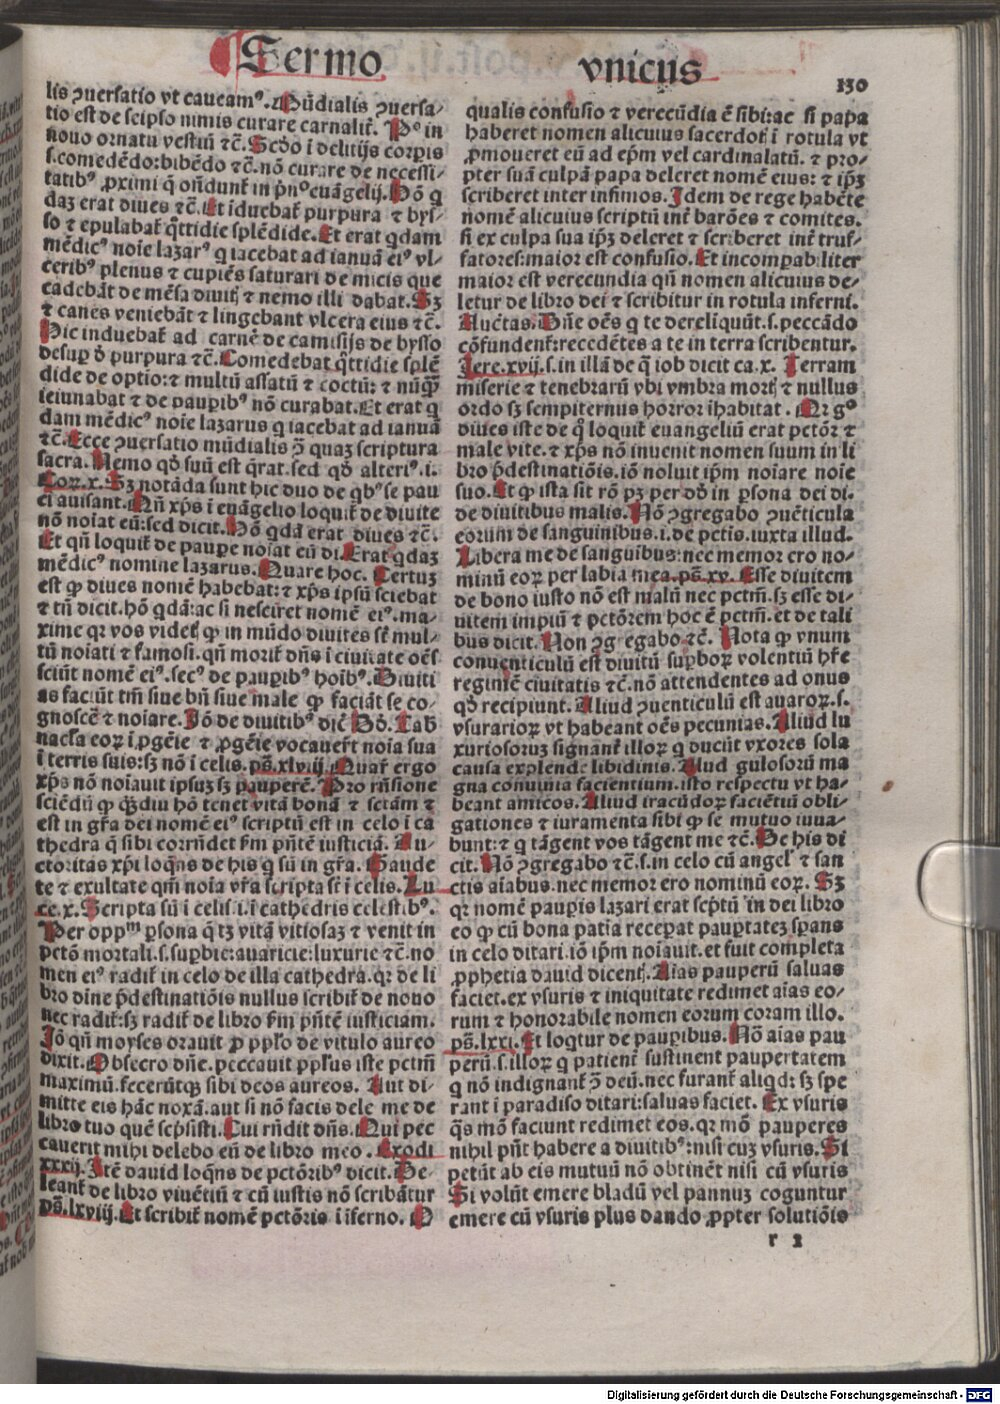 Sermo vnicus
130
lis ꝯuersatio vt caueamꝰ. Mūdialis ꝯuersa-
tio est de seipso nimis curare carnalit̄. Pº in
nouo ornatu vestiū ⁊c̄. Scḋo i delitijs corꝑis
s.comedēdo:bibēdo ⁊c̄.nō curare de necessi-
tatibꝰ ꝓximi q̄ oñdunt̄ in p̄nº euāgelij. Hō q̄
daꝫ erat diues ⁊c̄. Et iduebat̄ purpura ⁊ bys-
so ⁊ epulabat̄ q̄ttidie splēdide. Et erat qdam
mēdicꝰ noīe lazarꝰ q iacebat ad ianuā eiꝰ vl-
ceribꝰ plenus ⁊ cupiēs saturari de micis que
cadebāt de mēsa diuitꝭ ⁊ nemo illi dabat. Sꝫ
⁊ canes veniebāt ⁊ lingebant vlcera eius ⁊c̄.
Hic induebat̄ ad carnē de camisijs de bysso
desup ḋ purpura ⁊c̄. Comedebat q̄ttidie splē
dide de optio:⁊ multū assatū ⁊ coctū: ⁊ nūq̄ꝫ
ieiunabat ⁊ de pauꝑibꝰ nō curabat. Et erat q
dam mēdicꝰ noīe lazarus q iacebat ad ianuā
⁊c̄. Ecce ꝯuersatio mūdialis ꝯ̄ quaꝫ scriptura
sacra. Nemo qḋ suū est q̄rat.sed qḋ alteriꝰ.i.
Coꝝ.x. Sꝫ notāda sunt hic duo de qbꝰ se pau
ci auisant. Nā xp̄s i euāgelio loquit̄ de diuite
nō noiat eū:sed dicit. Hō qdā erat diues ⁊c̄.
Et qñ loquit̄ de paupe noiat eū dī. Erat qdaꝫ
mēdicꝰ nomine lazarus. Quare hoc. Certuꝫ
est ꝙ diues nomē habebat:⁊ xp̄s ipsū sciebat
⁊ tñ dicit.hō qdā:ac si nesciret nomē eiꝰ.ma-
xime qꝛ vos videtꝭ ꝙ in mūdo diuites sr̄ mul-
tū noiati ⁊ famosi.qñ morit̄ dñs i ciuitate oēs
sciūt nomē eiꝰ.secꝰ de pauꝑibꝰ hoībꝰ. Diuiti
as faciūt tm̄ siue bñ siue male ꝙ faciāt se co-
gnoscē ⁊ noiare. Iō de diuitibꝰ dic̄ Dō. Tab̄
nacl̄a eoꝝ i ꝓgēie ⁊ ꝓgēie vocauer̄t noīa sua
i terris suis:sꝫ nō i celis.pš.xlviij. Quar̄ ergo
xp̄s nō noiauit ipsuꝫ sꝫ pauperē. Pro rñsione
sciēdū ꝙ q̄ꝫdiu hō tenet vitā bonā ⁊ sctām ⁊
est in gr̄a dei nomē eiꝰ scriptū est in celo i ca
thedra q̄ sibi corrñdet ẜm p̄ntē iusticiā. Au-
ctoritas xp̄i loqñs de his q sū in gr̄a. Gaude
te ⁊ exultate qm̄ noīa vr̄a scripta sr̄ i celis. Lu
ce.x. Scripta sū i celis.i.i cathedris celestibꝰ.
Per oppᵐ ꝑsona q̄ tꝫ vitā vitiosaꝫ ⁊ venit in
pctō mortali.s.suꝑbie:auaricie:luxurie ⁊c̄.no
men eiꝰ radit̄ in celo de illa cathedra.qꝛ de li
bro dīne p̄destinatiōis nullus scribit̄ de nouo
nec radit̄:sꝫ radit̄ de libro ẜm p̄ntē iusticiam.
Iō qñ moyses orauit ꝓ pplo de vitulo aureo
dixit. Obsecro dñe.peccauit pplus iste pctm̄
maximū.fecerūtqꝫ sibi deos aureos. Aut di-
mitte eis hāc noxā.aut si nō facis dele me de
libro tuo quē scpsisti. Cui rñdit dñs. Qui pec
cauerit mihi delebo eū de libro meo. Exodi
xxxij. Itē dauid loqñs de pctōribꝰ dicit. De-
leant̄ de libro viuētiū ⁊ cū iustis nō scribātur
Pš.lxviij. Et scribit̄ nomē pctōris i īferno. O
qualis confusio ⁊ verecūdia ē sibi:ac si papa
haberet nomen alicuius sacerdotꝭ i rotula vt
ꝓmoueret eū ad ep̄m vel cardinalatū. ⁊ pro-
pter suā culpā papa deleret nomē eius: ⁊ ip̄ꝫ
scriberet inter infimos. Idem de rege habēte
nomē alicuius scriptū int̄ barōes ⁊ comites.
si ex culpa sua ip̄ꝫ deleret ⁊ scriberet int̄ truf-
fatores:maior est confusio. Et incompab̄liter
maior est verecundia qñ nomen alicuius de-
letur de libro dei ⁊ scribitur in rotula inferni.
Auctēas. Dñe oēs q te dereliquūt.s.peccādo
cōfundent̄:recedētes a te in terra scribentur.
Iere.xvij.s.in illā de q̄ iob dicit ca.x. Terram
miserie ⁊ tenebrarū vbi vmbra mortꝭ ⁊ nullus
ordo sꝫ sempiternus horror ihabitat. Qꝛ gº
diues iste de q̄ loquit̄ euangeliū erat pctōr ⁊
male vite.⁊ xp̄s nō inuenit nomen suum in li
bro p̄destinatiōis.iō noluit ip̄m noīare noīe
suo. Et ꝙ ista sit rō pꝫ per dō in ꝑsona dei di.
de diuitibus malis. Nō ꝯgregabo ꝯuēticula
eorum de sanguinibus.i.de pctis.iuxta illud.
Libera me de sanguībus:nec memor ero no-
minū eoꝝ per labia mea.pš.xv. Esse diuitem
de bono iusto nō est malū nec pctm̄.sꝫ esse di-
uitem impiū ⁊ pctōrem hoc ē pctm̄.et de tali
bus dicit. Non ꝯgregabo ⁊c̄. Nota ꝙ vnum
conuenticulū est diuitū supboꝝ volentiū hr̄e
regimē ciuitatis ⁊c̄.nō attendentes ad onus
qḋ recipiunt. Aliud ꝯuenticulū est auaroꝝ.s.
vsurarioꝝ vt habeant oēs pecunias. Aliud lu
xuriosoruꝫ signant̄ illoꝝ q ducūt vxores sola
causa explende libidinis. Aliud gulosorū ma
gna conuiuia facientium.isto respectu vt ha-
beant amicos. Aliud iracūdoꝝ faciētiū obli-
gationes ⁊ iuramenta sibi ꝙ se mutuo iuua-
bunt:⁊ q tāgent vos tāgent me ⁊c̄. De his di
cit. Nō ꝯgregabo ⁊c̄.s.in celo cū angel̄ ⁊ san
ctis aīabus.nec memor ero nominū eoꝝ. Sꝫ
qꝛ nomē pauꝑis lazari erat scp̄tū in dei libro
eo ꝙ cū bona patīa recepat pauptateꝫ sꝑans
in celo ditari.iō ip̄m noīauit.et fuit completa
ꝓphetia dauid dicentꝭ. Aīas pauperū saluas
faciet.ex vsuris ⁊ iniquitate redimet aīas eo-
rum ⁊ honorabile nomen eorum coram illo.
pš.lxxi. Et loqtur de paupibus. Nō aīas pau
perū.s.illoꝝ q patient̄ sustinent paupertatem
q nō indignant̄ ꝯ̄ deū.nec furant̄ aliqd: sꝫ spe
rant i paradiso ditari:saluas faciet. Ex vsuris
q̄s mō faciunt redimet eos.qꝛ mō pauperes
nihil pñt habere a diuitibꝰ:nisi cuꝫ vsuris. Si
petūt ab eis mutuū nō obtinēt nisi cū vsuris
Si volūt emere bladū vel pannuꝫ coguntur
emere cū vsuris plus dando ꝓpter solutiōis
r 2
Digitalisierung gefördert durch die Deutsche Forschungsgemeinschaft - DFG